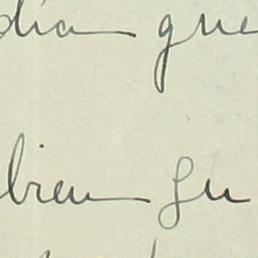 dia que
bien su